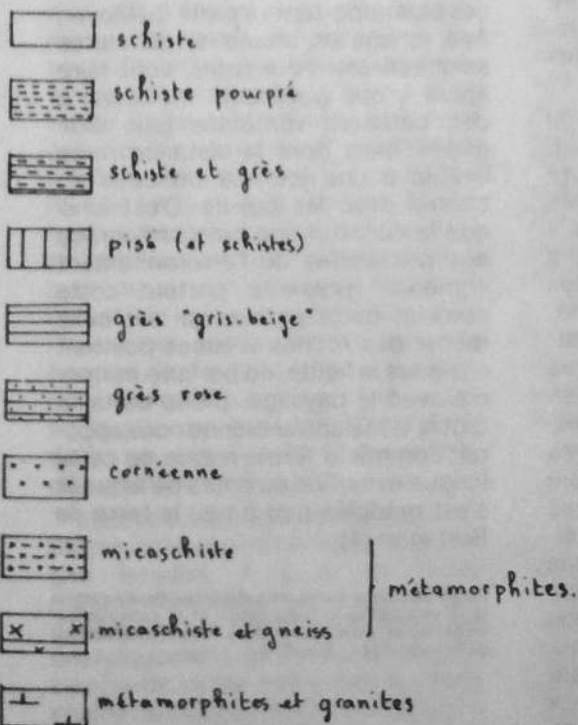 schiste
schiste pourpré
schiste et grès
pisé (et schistes)
grès "gris-beige"
grès rose
cornéenne
micaschiste
métamorphites.
micaschiste et gneiss
métamorphites et granites